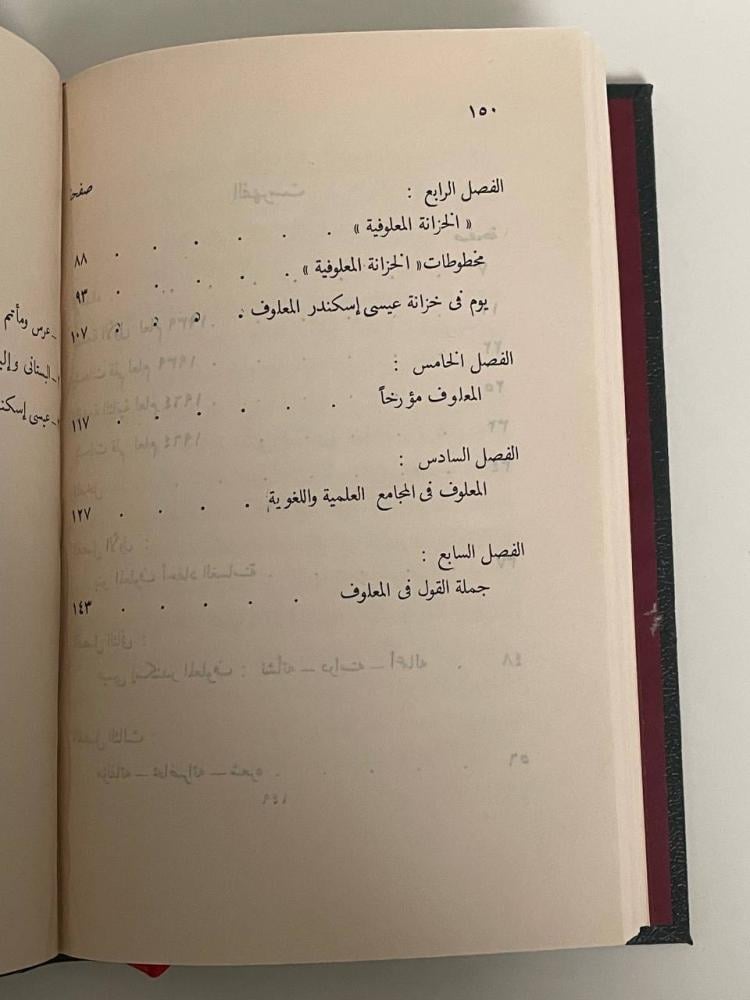 ١٥٠
صفحة
الفصل الرابع :
« الخزانة المعلوفية » . . . . . . ٨٨
مخطوطات « الخزانة المعلوفية » . . . . . ٩٣
يوم فى خزانة عيسى إسكندر المعلوف . . . . ١٠٧
الفصل الخامس :
المعلوف مؤرخاً . . . . . . ١١٧
الفصل السادس :
المعلوف فى المجامع العلمية واللغوية . . . . ١٢٧
الفصل السابع :
جملة القول فى المعلوف . . . . . ١٤٣
عرس ومأتم
عيسى